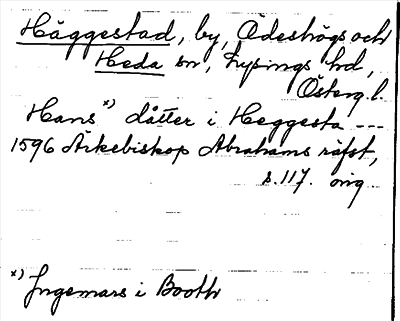 Häggestad, by, Ödeshögs och
Heda sn, Lysings hd,
Österg. l.
Hans x) dåtter i Heggesta ---
1596 Ärkebiskop Abrahams räfst,
s. 117. orig
x) Ingemars i Booth